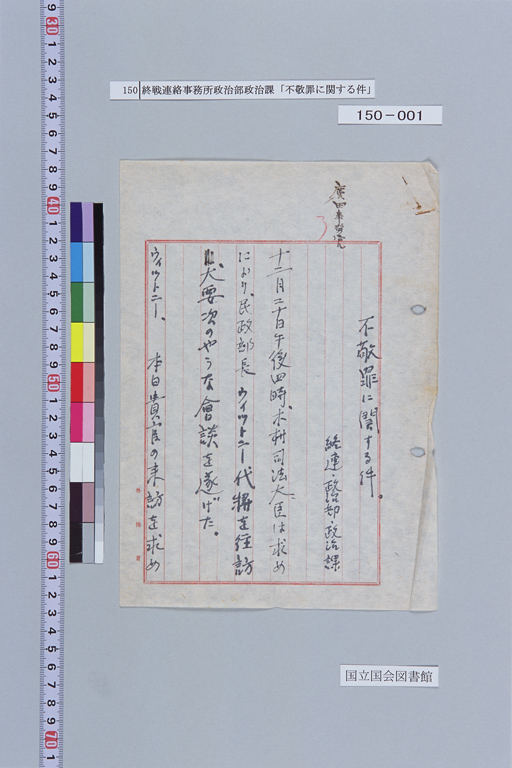 150 終戦連絡事務所政治部政治課「不敬罪に関する件」
150-001
不敬罪に関する件。
終連、政治部、政治課
十二月二十日午後四時、木村司法大臣は求め
により、民政部長 ウイットニー代将を往訪
大要次のやうな會談を遂げた。
ウィットニー、 本日貴官の来訪を求め
外務省
国立国会図書館